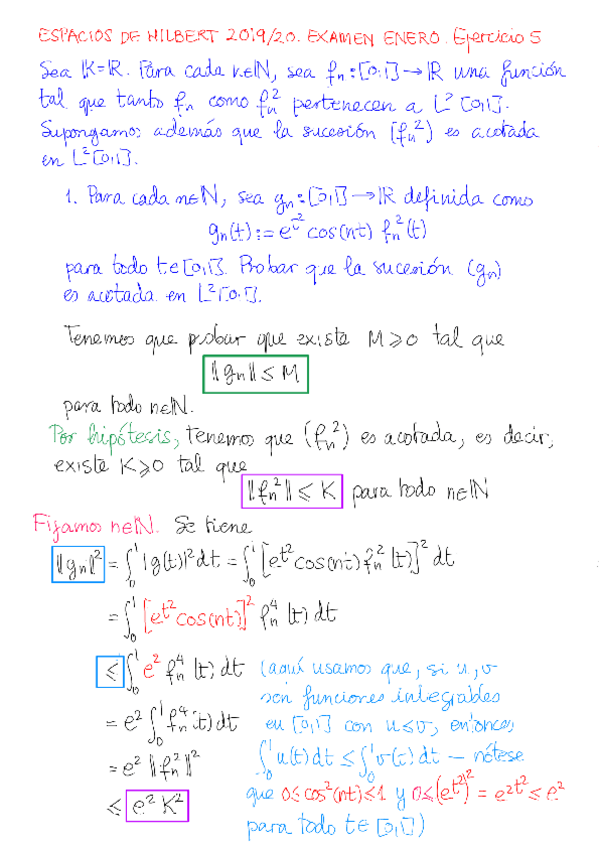 ESPACIOS DE HILBERT 2019/20. EXAMEN ENERO. Ejercicio 5
Sea K=R. Para cada n∈N, sea fₙ:[0,1]→R una función
tal que tanto fₙ como fₙ² pertenecen a L²[0,1].
Supongamos además que la sucesión (fₙ²) es acotada
en L²[0,1].
1. Para cada n∈N, sea gₙ:[0,1]→R definida como
gₙ(t):= e^{t²} cos(nt) fₙ²(t)
para todo t∈[0,1]. Probar que la sucesión (gₙ)
es acotada en L²[0,1].
Tenemos que probar que existe M≥0 tal que
||gₙ|| ≤ M
para todo n∈N.
Por hipótesis, tenemos que (fₙ²) es acotada, es decir,
existe K≥0 tal que
||fₙ²|| ≤ K para todo n∈N
Fijamos n∈N. Se tiene
||gₙ||² = ∫₀¹ |g(t)|² dt = ∫₀¹ [e^{t²} cos(nt) fₙ²(t)]² dt
= ∫₀¹ [e^{t²} cos(nt)]² fₙ⁴(t) dt
≤ ∫₀¹ e² fₙ⁴(t) dt (aquí usamos que, si u,v
son funciones integrables
= e² ∫₀¹ fₙ⁴(t) dt en [0,1] con u≤v, entonces
= e² ||fₙ²||² ∫₀¹ u(t) dt ≤ ∫₀¹ v(t) dt — nótese
≤ e² K² que 0≤cos²(nt)≤1 y 0≤(e^{t²})² = e^{2t²} ≤ e²
para todo t∈[0,1])